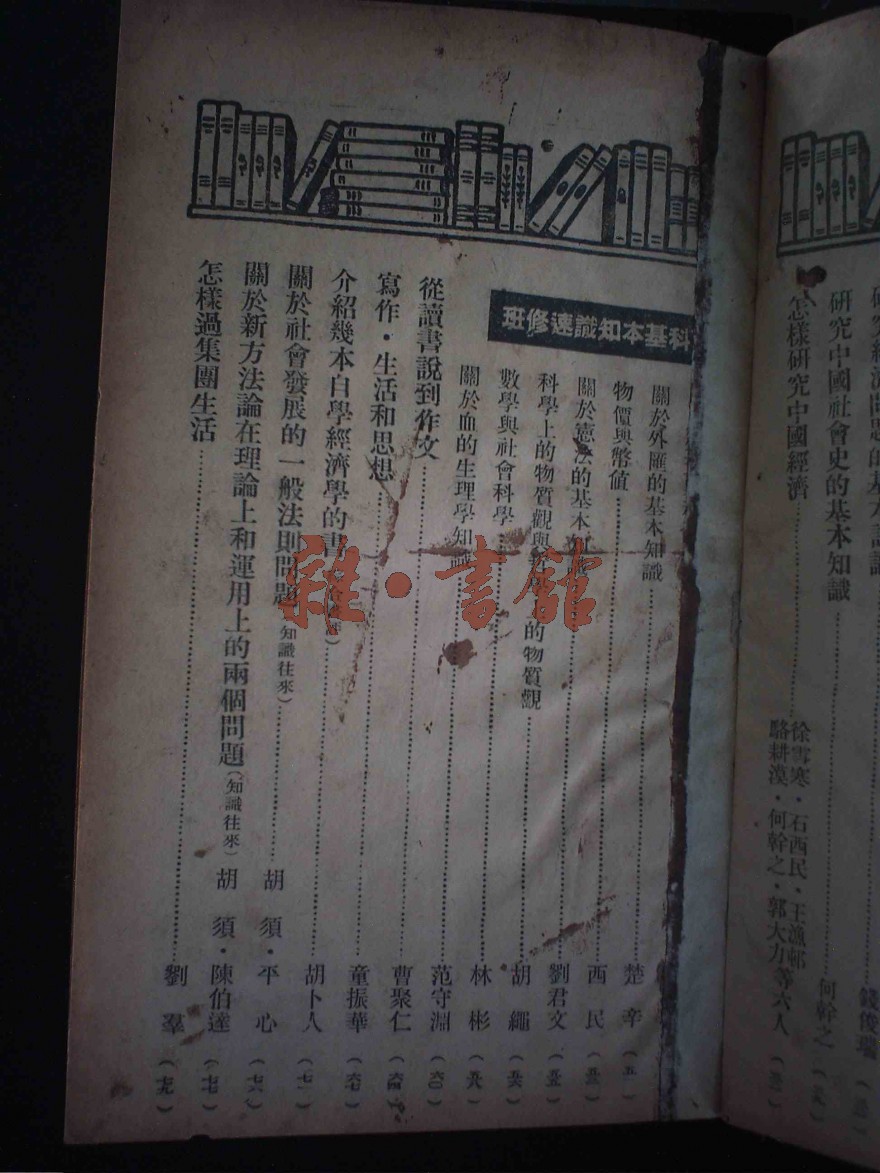 研究中國社會史的基本知識……何幹之
怎樣研究中國經濟……徐雪寒・石西民・王漁邨
駱耕漠・何幹之・郭大力等六人
錢俊瑞
科基本知識速修班
關於外匯的基本知識……楚辛(五一)
物價與幣值……西民(五三)
關於憲法的基本知識……劉君文(五五)
科學上的物質觀與哲學上的物質觀……胡繩(五六)
數學與社會科學……林彬(五八)
關於血的生理學知識……范守淵(六〇)
從讀書說到作文……曹聚仁(六四)
寫作・生活和思想……童振華(六七)
介紹幾本自學經濟學的書……胡卜人(七一)
關於社會發展的一般法則問題(知識往來)……胡須・平心(七六)
關於新方法論在理論上和運用上的兩個問題(知識往來)胡須・陳伯達(七七)
怎樣過集團生活……劉羣(七九)
雜・書館